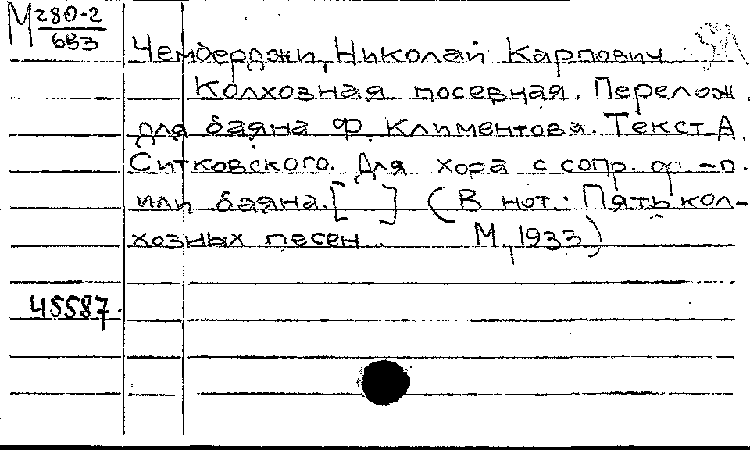 М 280-2
683
Чемберджи, Николай Карпович
Колхозная посевная. Перелож.
для баяна Ф. Климентова. Текст А.
Ситковского. Для хора с сопр. ф.-п.
или баяна. [ ] (В нот.: Пять кол-
хозных песен М., 1933)
45587